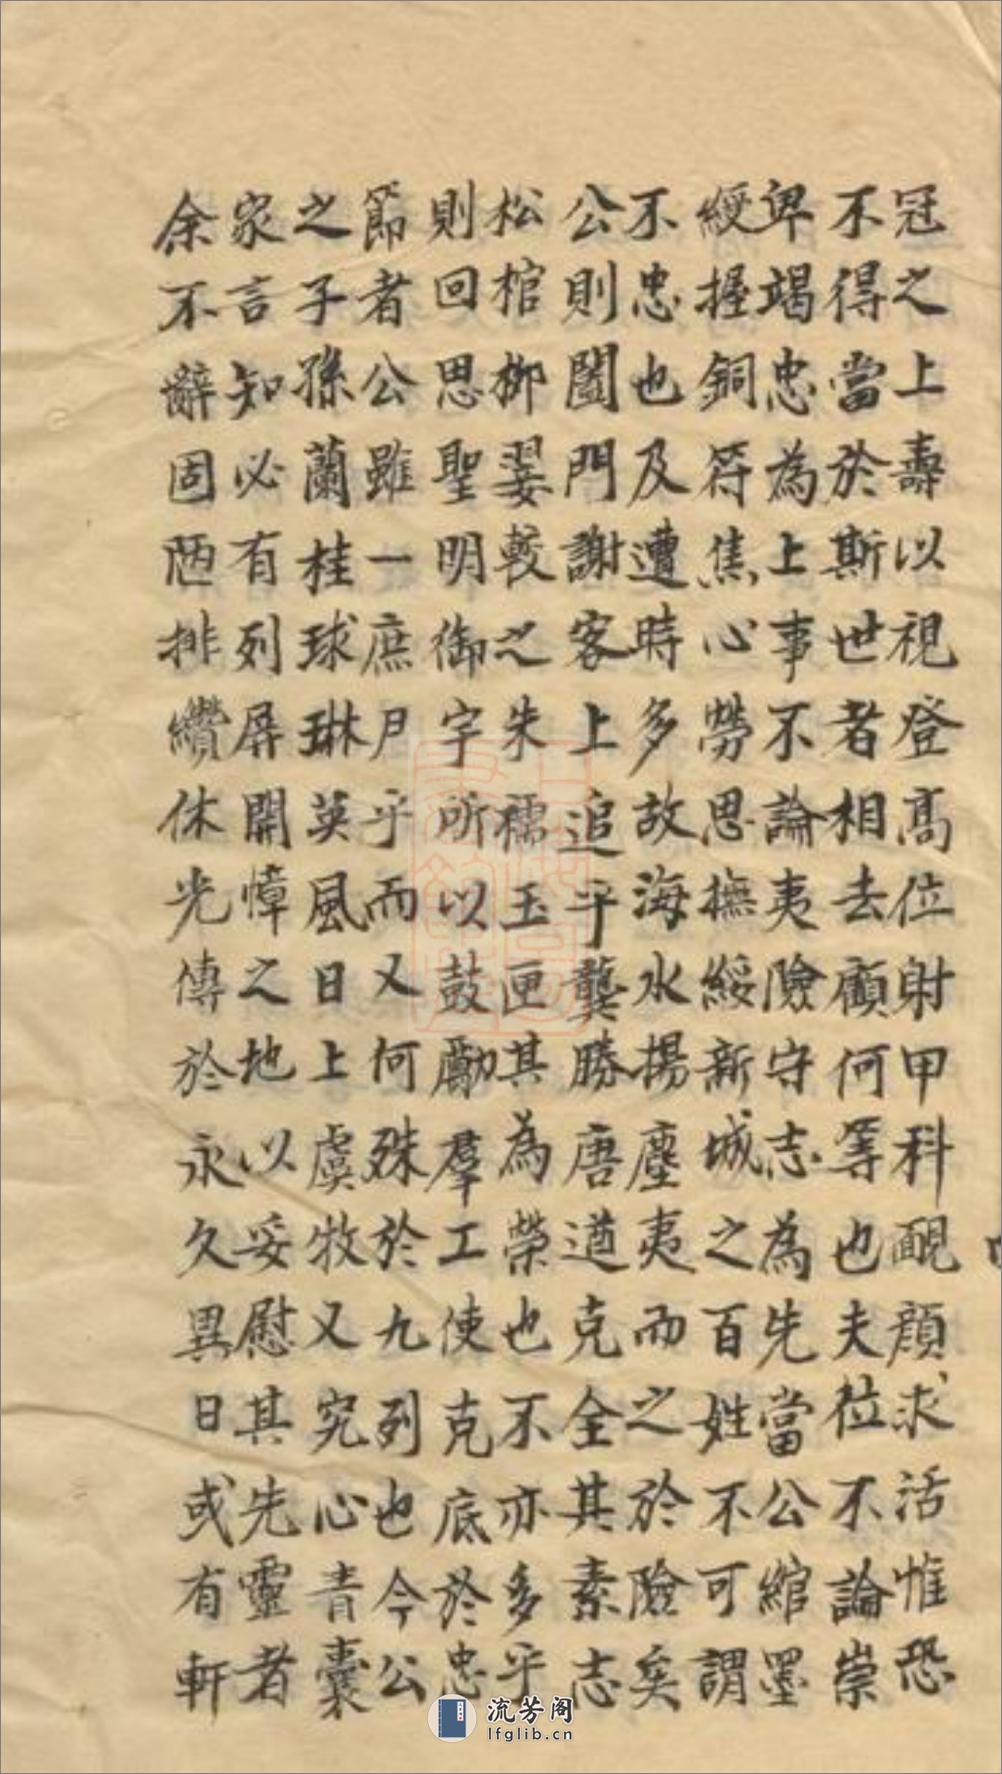 冠之上壽以視登高位躬甲科靦顔求活惟恐
不得當於斯世者相去顧何等也夫位不論崇
卑竭忠為上事不論夷險守志為先當公綰墨
綬握銅符焦心勞思撫綏新城之百姓不可謂
不忠也及遭時多故海水揚塵夷而之於險矣
公則闔門謝客上追乎龔勝唐遵克全其素志
松棺柳翣較之朱襦玉匣其為榮也不亦多乎
則回思聖明御宇所以鼓勵羣工使克底於忠
節者公雖一庶尹乎而又何殊於九列也今公
之子孫蘭桂球琳英風日上虞牧又究心青囊
家言知必有列屏開幛之地以妥慰其先靈者
余不辭固陋排纘休光傳於永久異日或有軒
流芳阁
lfglib.cn